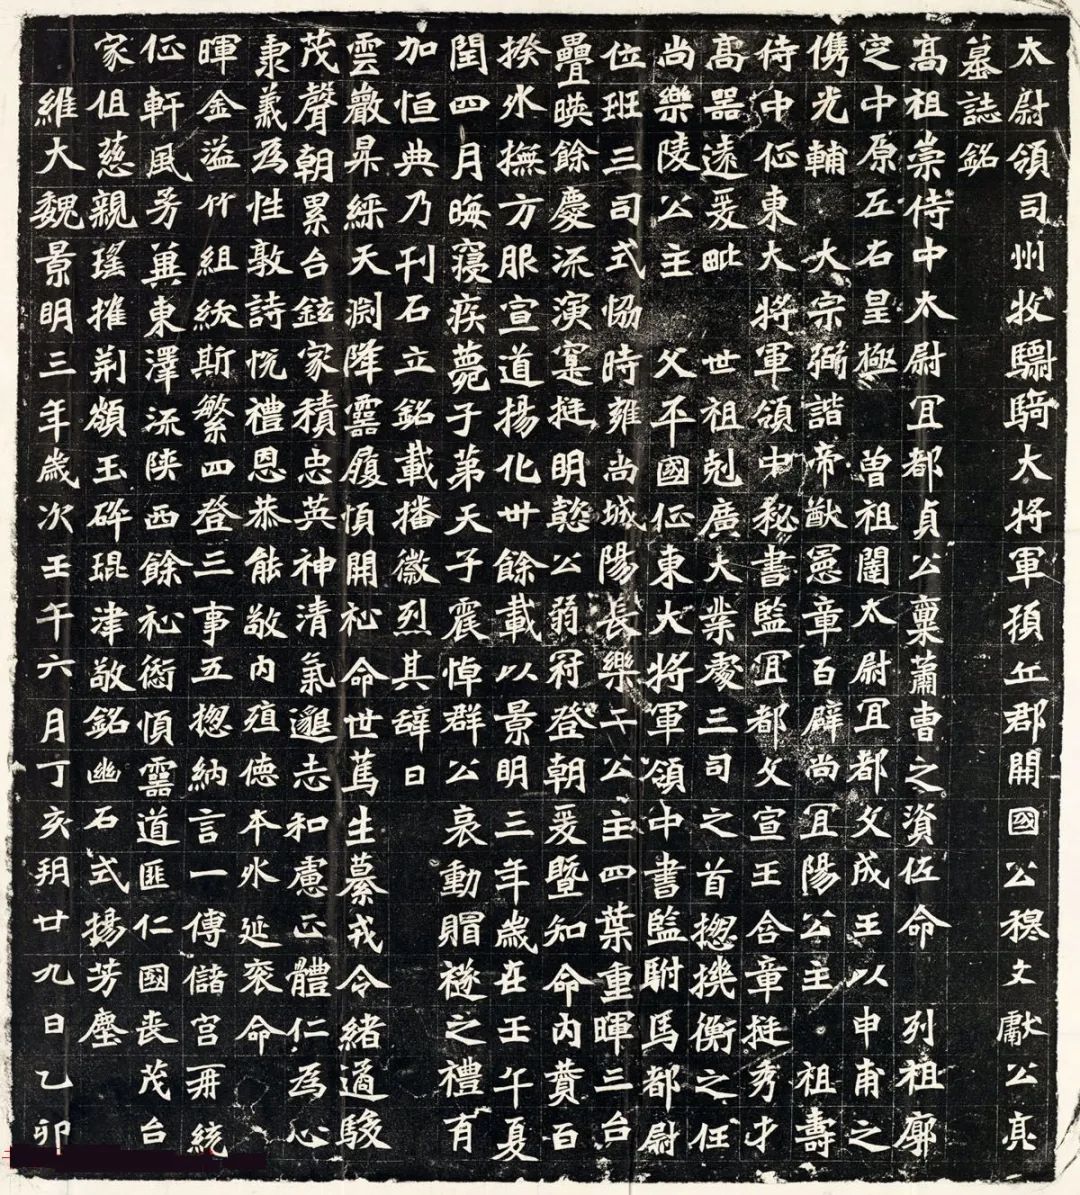 太尉領司州牧驃騎大將軍頓丘郡開國公穆文獻公亮
墓誌銘
高祖崇侍中太尉冝都貞公稟蕭曹之資佐命　列祖廓
定中原左右皇極　曾祖闥太尉冝都文成王以申甫之
儁光輔　大宗弼諧帝猷憲章百辟尚冝陽公主　祖壽
侍中征東大將軍領中秘書監冝都文宣王含章挺秀才
高器遠爰毗　世祖剋廣大業處三司之首揔機衡之任
尚樂陵公主　父平國征東大將軍領中書監駙馬都尉
位班三司式協時雍尚城陽長樂二公主四葉重暉三台
疊暎餘慶流演寔挺明懿公弱冠登朝爰暨知命內贊百
揆外撫方服宣道揚化卅餘載以景明三年歲在壬午夏
閏四月晦寢疾薨于第天子震悼群公哀動賵襚之禮有
加恒典乃刊石立銘載播徽烈其辞曰
雲巖昇綵天淵降靈履順開祉命世篤生纂戎令緒遹駿
茂聲朝累台鉉家積忠英神清氣邈志和慮正體仁為心
秉義為性敦詩悅禮恩恭能敬內殖德本外延衮命
暉金溢竹組紱斯繁四登三事五揔納言一傅儲宮再統
征軒風芳冀東澤流陝西餘祉衍慎靈道匪仁國喪茂台
家伹慈親瑤摧荊巔玉碎琨津敬銘幽石式揚芳塵
維大魏景明三年歲次壬午六月丁亥朔廿九日乙卯